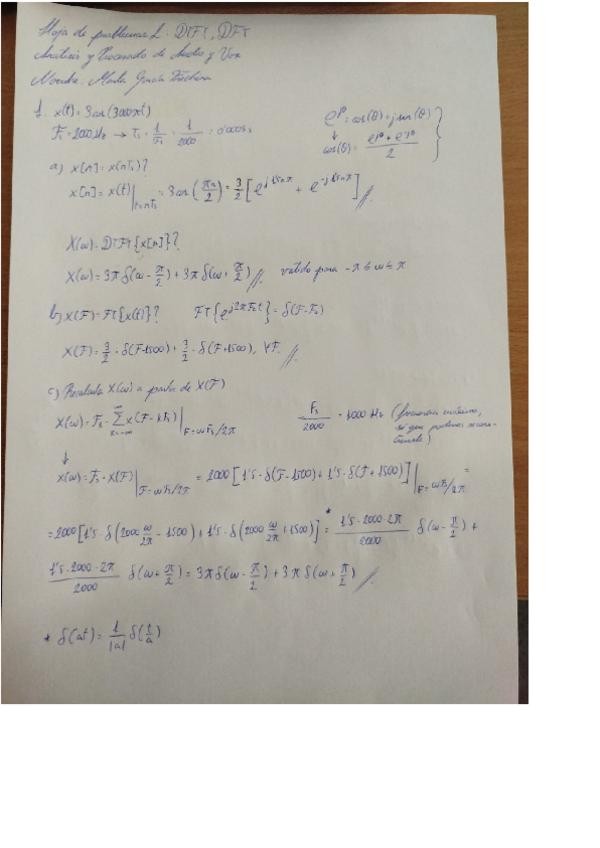 Hoja de problemas 1: DTFT, DFT
Análisis y Procesado de Audio y Voz
Nombre: Marta
1. x(t) = 3cos(3000πt)
Fs = 2000 Hz → Ts = 1/Fs = 1/2000 = 0'0005 s
e^jθ = cos(θ) + j sen(θ)
↓
cos(θ) = (e^jθ + e^-jθ)/2 }
a) x[n] = x(nTs)?
x[n] = x(t)|t=nTs = 3cos(πn/2) = 3/2 [e^j1'5nπ + e^-j1'5nπ] //
X(ω) = DTFT{x[n]}?
X(ω) = 3π δ(ω - π/2) + 3π δ(ω + π/2) // valido para -π ≤ ω ≤ π
b) X(F) = FT{x(t)}? FT{e^j2πF0t} = δ(F-F0)
X(F) = 3/2 · δ(F-1500) + 3/2 · δ(F+1500), ∀F. //
c) Recalcula X(ω) a partir de X(F)
X(ω) = Fs · ∑ k=-∞ ∞ X(F - kFs)|F=ωFs/2π
Fs/2000 = 1000 Hz (frecuencia máxima,
↓
X(ω) = Fs · X(F)|F=ωFs/2π = 2000 [1'5 · δ(F-1500) + 1'5 · δ(F+1500)]|F=ωFs/2π =
= 2000 [1'5 · δ(2000 ω/2π - 1500) + 1'5 · δ(2000 ω/2π + 1500)] =* 1'5 · 2000 · 2π/2000 δ(ω - π/2) +
1'5 · 2000 · 2π/2000 δ(ω + π/2) = 3π δ(ω - π/2) + 3π δ(ω + π/2) //
* δ(at) = 1/|a| δ(t/a)